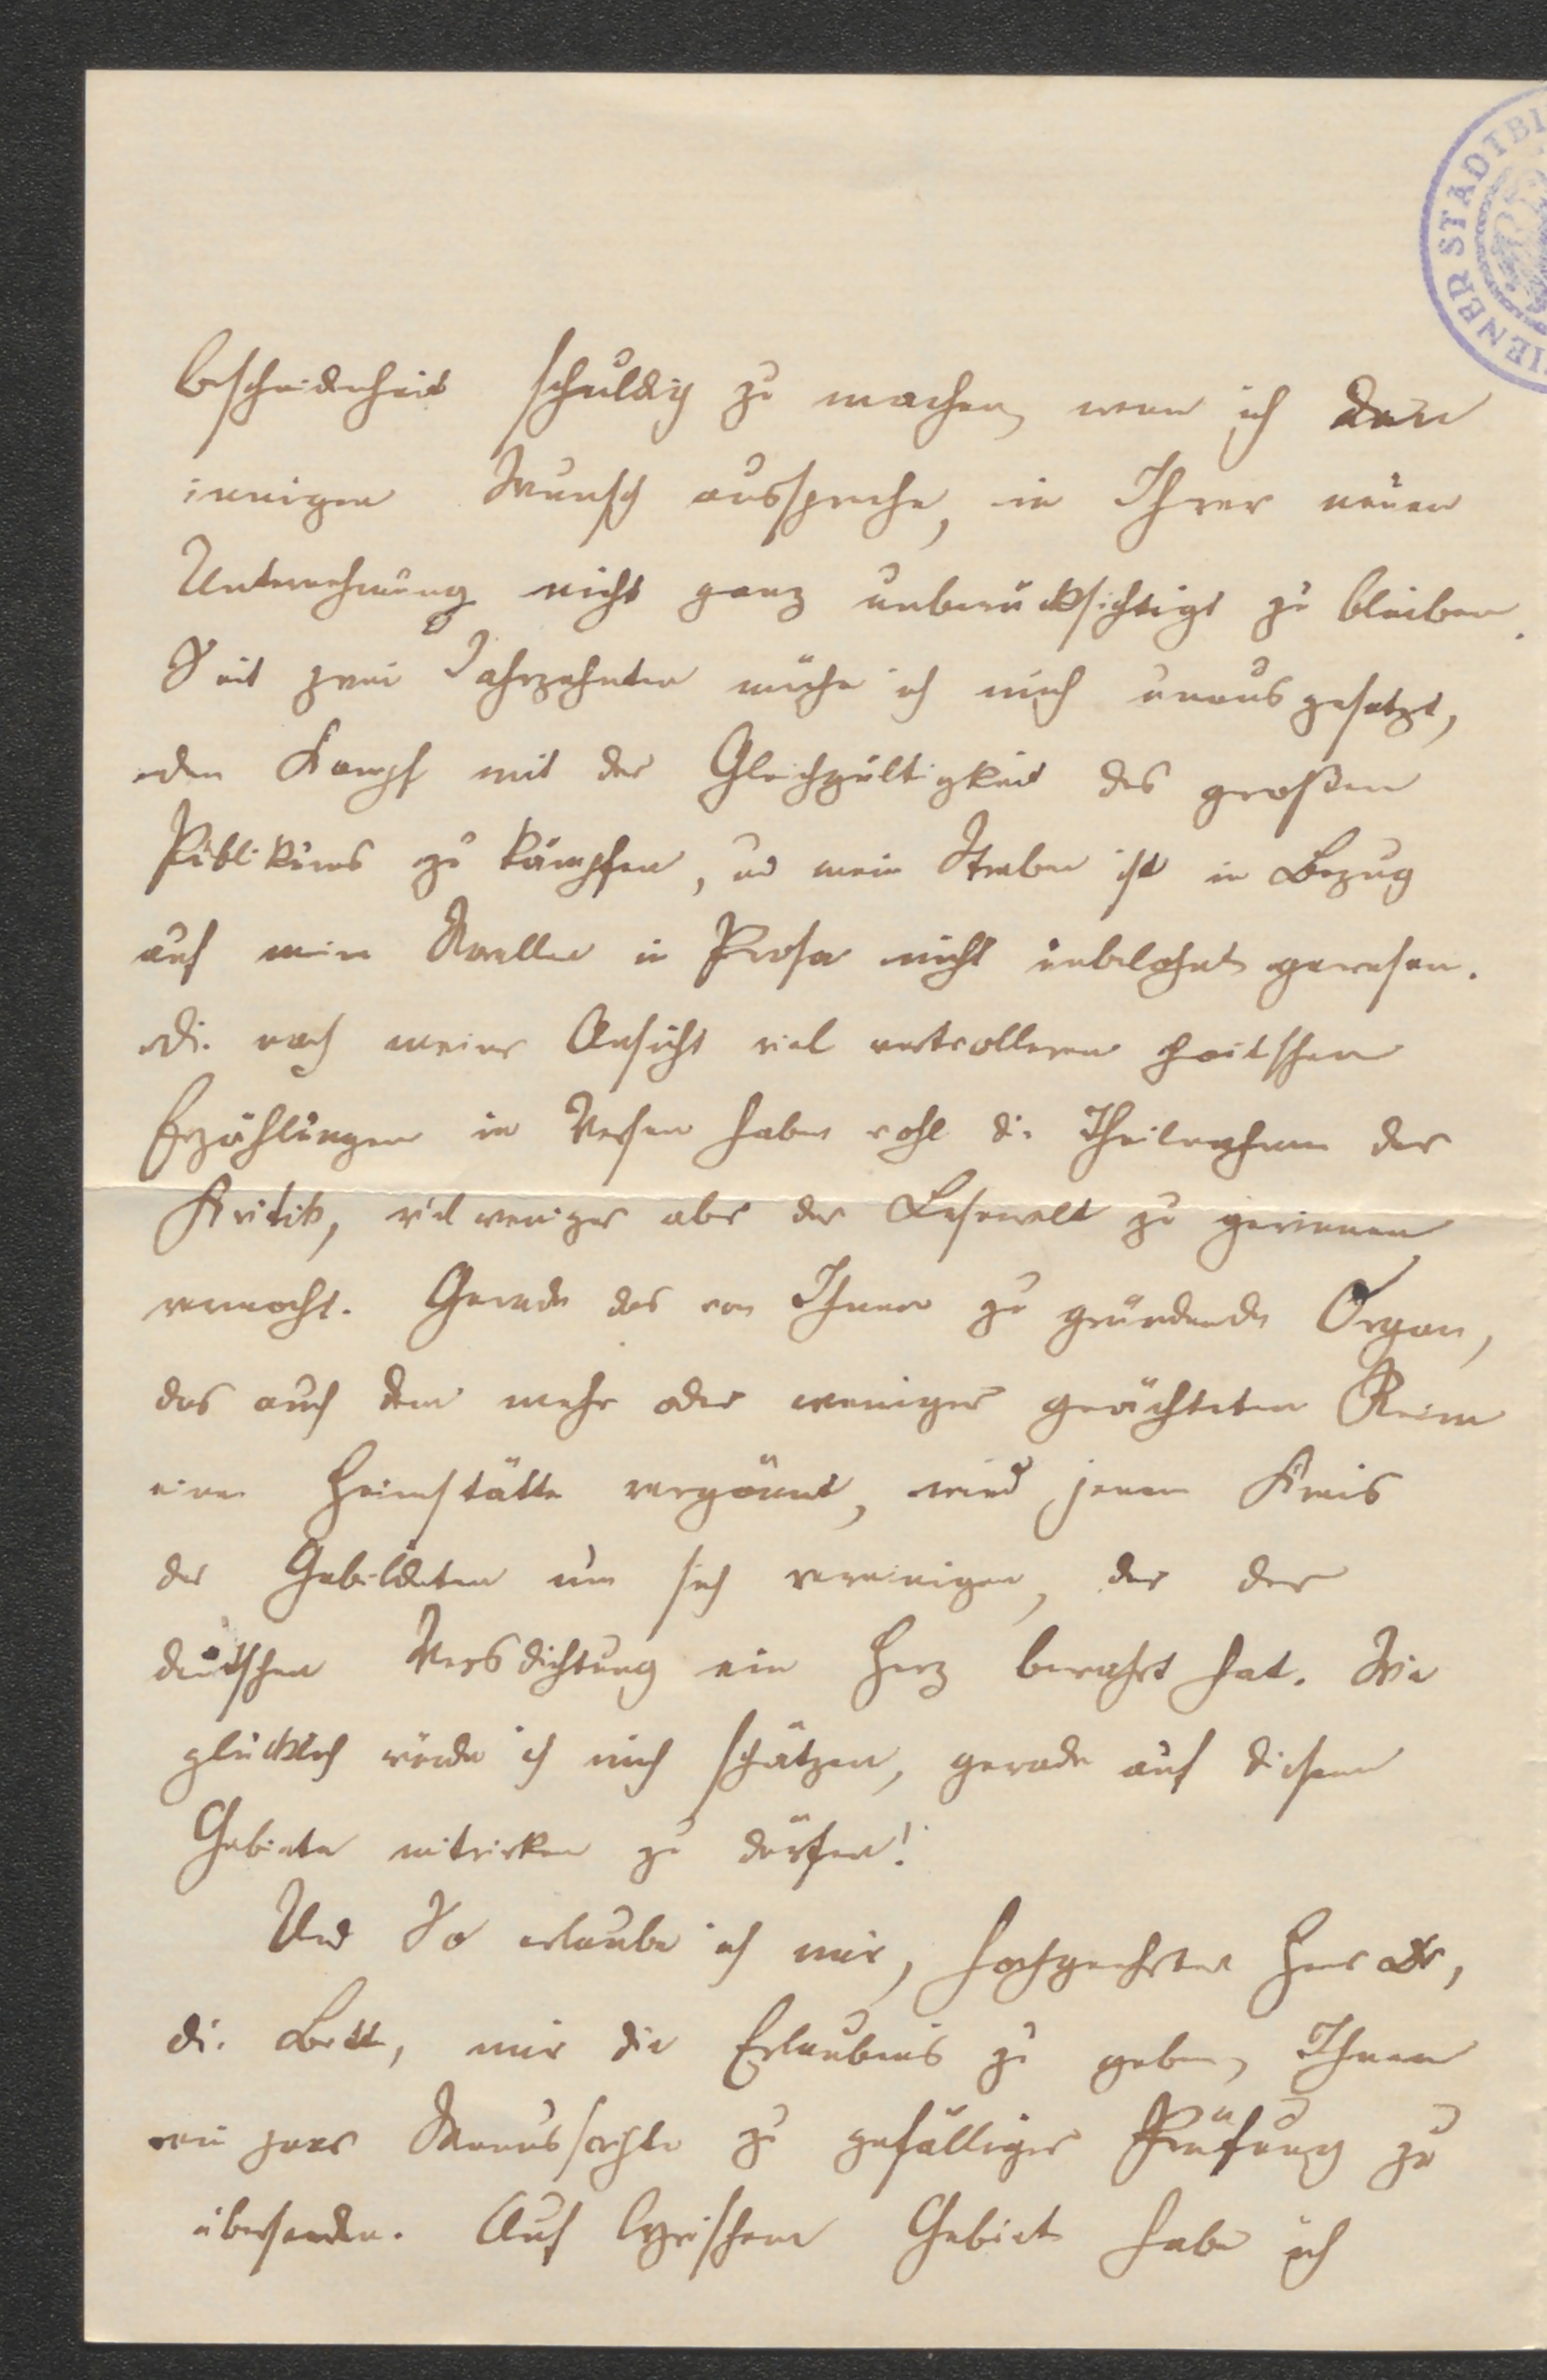 WIENER STADTBI
bescheidenheit schuldig zu machen, wenn ich den
innigen Wunsch ausspreche, in Ihrer neuen
Unternehmung nicht ganz unberücksichtigt zu bleiben.
Seit zwei Jahrzehnten mühe ich mich unausgesetzt,
den Kampf mit der Gleichgültigkeit des großen
Publikums zu kämpfen, und mein Streben ist in Bezug
auf meine Novellen in Prosa nicht unbelohnt gewesen.
Die nach meiner Ansicht viel wertvolleren poetischen
Erzählungen in Versen haben wohl die Theilnahme der
Kritik, viel weniger aber der Lesewelt zu gewinnen
vermocht. Gerade das von Ihnen zu gründende Organ,
das auch dem mehr oder weniger geächteten Reim
eine Heimstätte vergönnt, wird jenen Kreis
der Gebildeten um sich vereinigen, der der
deutschen Versdichtung ein Herz bewahrt hat. Wie
glücklich würde ich mich schätzen, gerade auf diesem
Gebiete mitwirken zu dürfen!
Und So erlaube ich mir, hochgeehrter Herr Dr,
die Bitte, mir die Erlaubnis zu geben, Ihnen
ein paar Manuskripte zu gefälliger Prüfung zu
übersenden. Auf lyrischem Gebiet habe ich